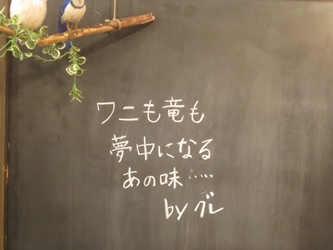 ワニも竜も
夢中になる
あの味……
by グレ